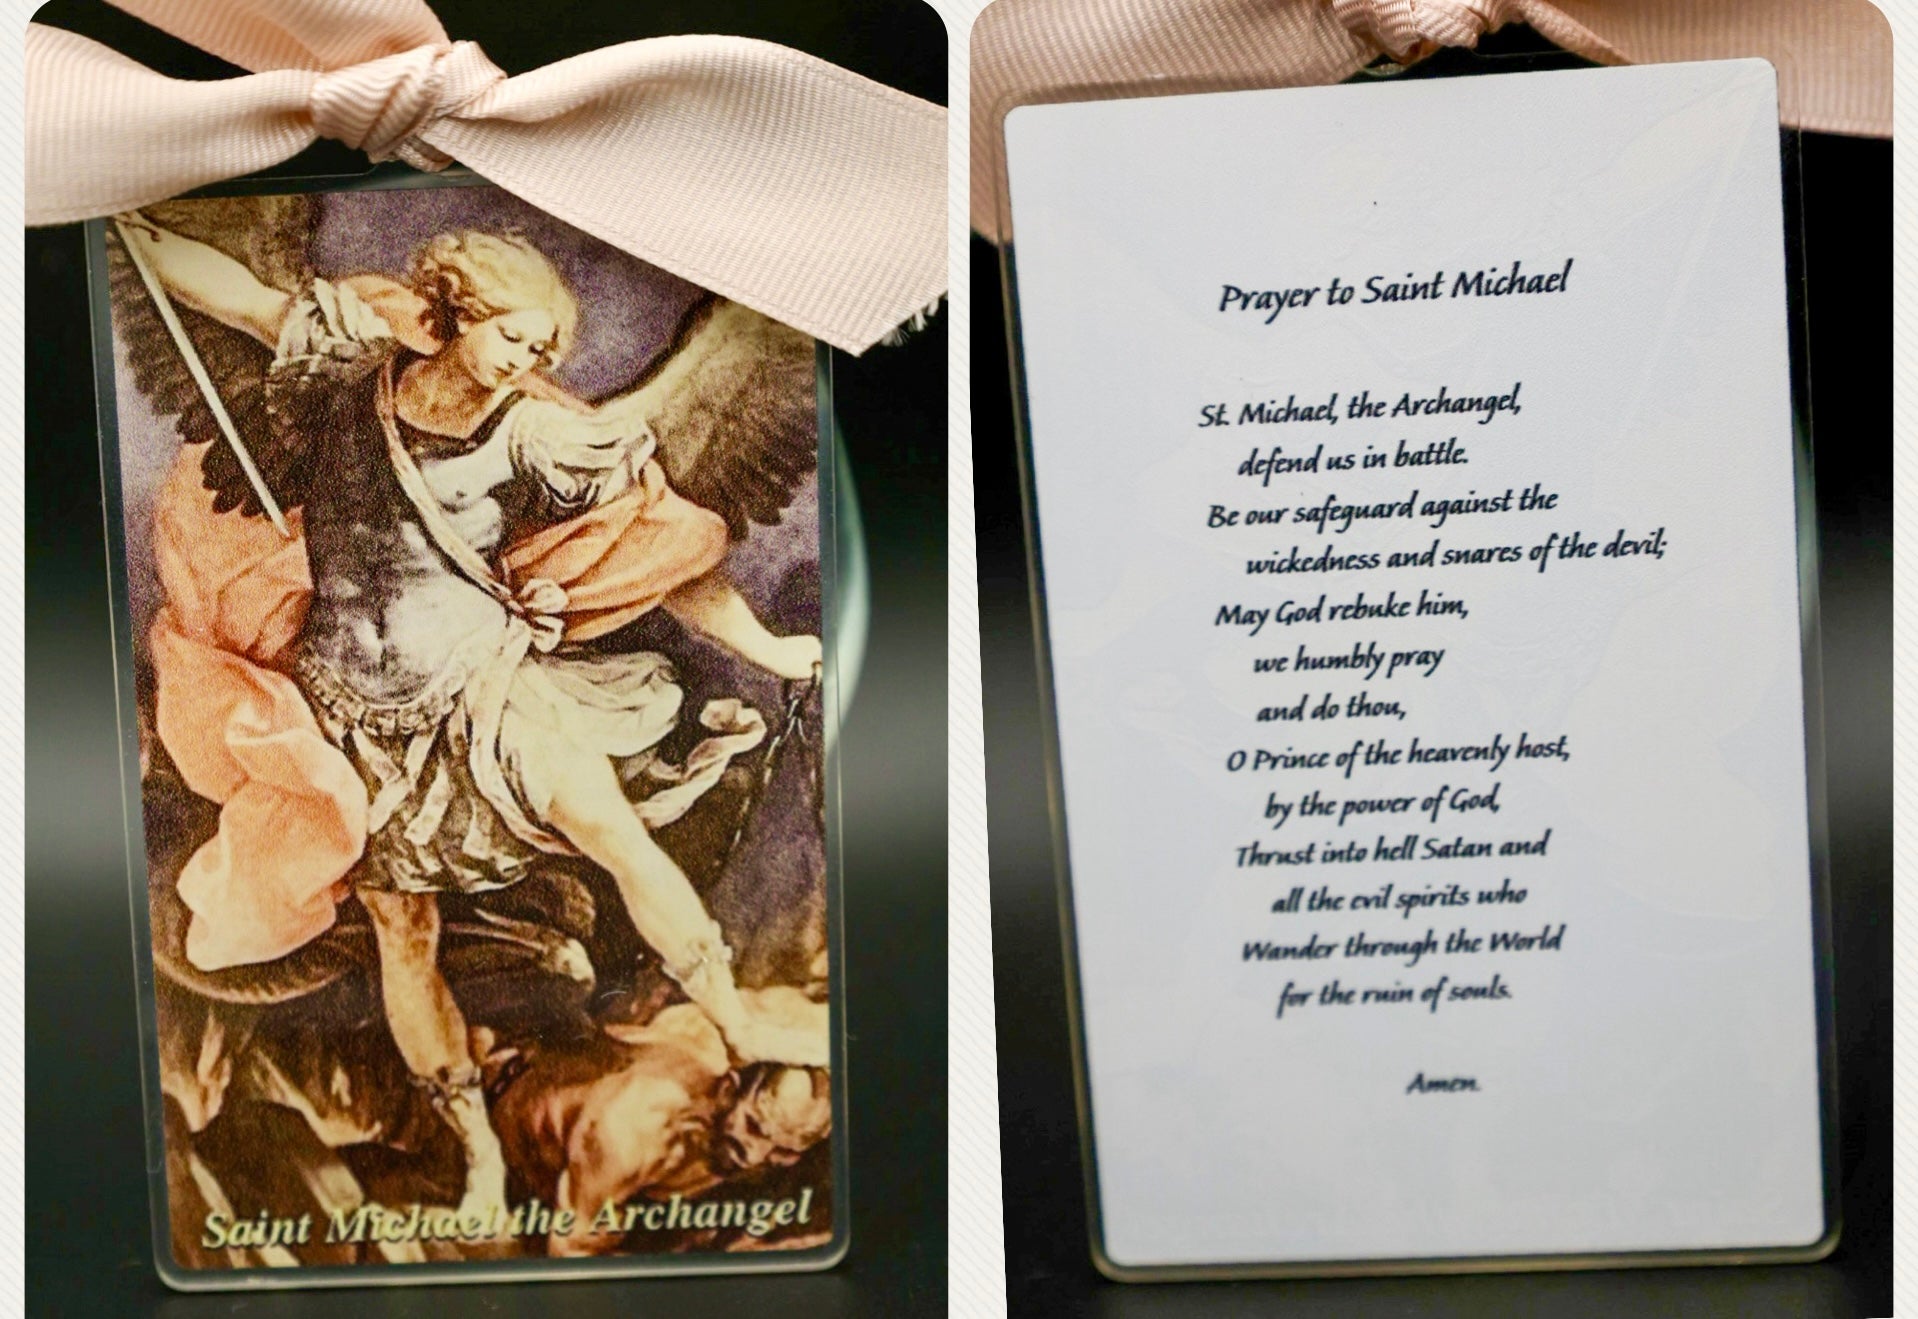 Saint Michael the Archangel
Prayer to Saint Michael
St. Michael, the Archangel,
defend us in battle.
Be our safeguard against the
wickedness and snares of the devil;
May God rebuke him,
we humbly pray
and do thou,
O Prince of the heavenly host,
by the power of God,
Thrust into hell Satan and
all the evil spirits who
Wander through the World
for the ruin of souls.
Amen.